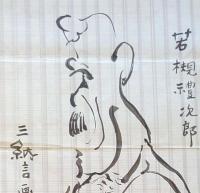 若槻禮次郎
三納言画